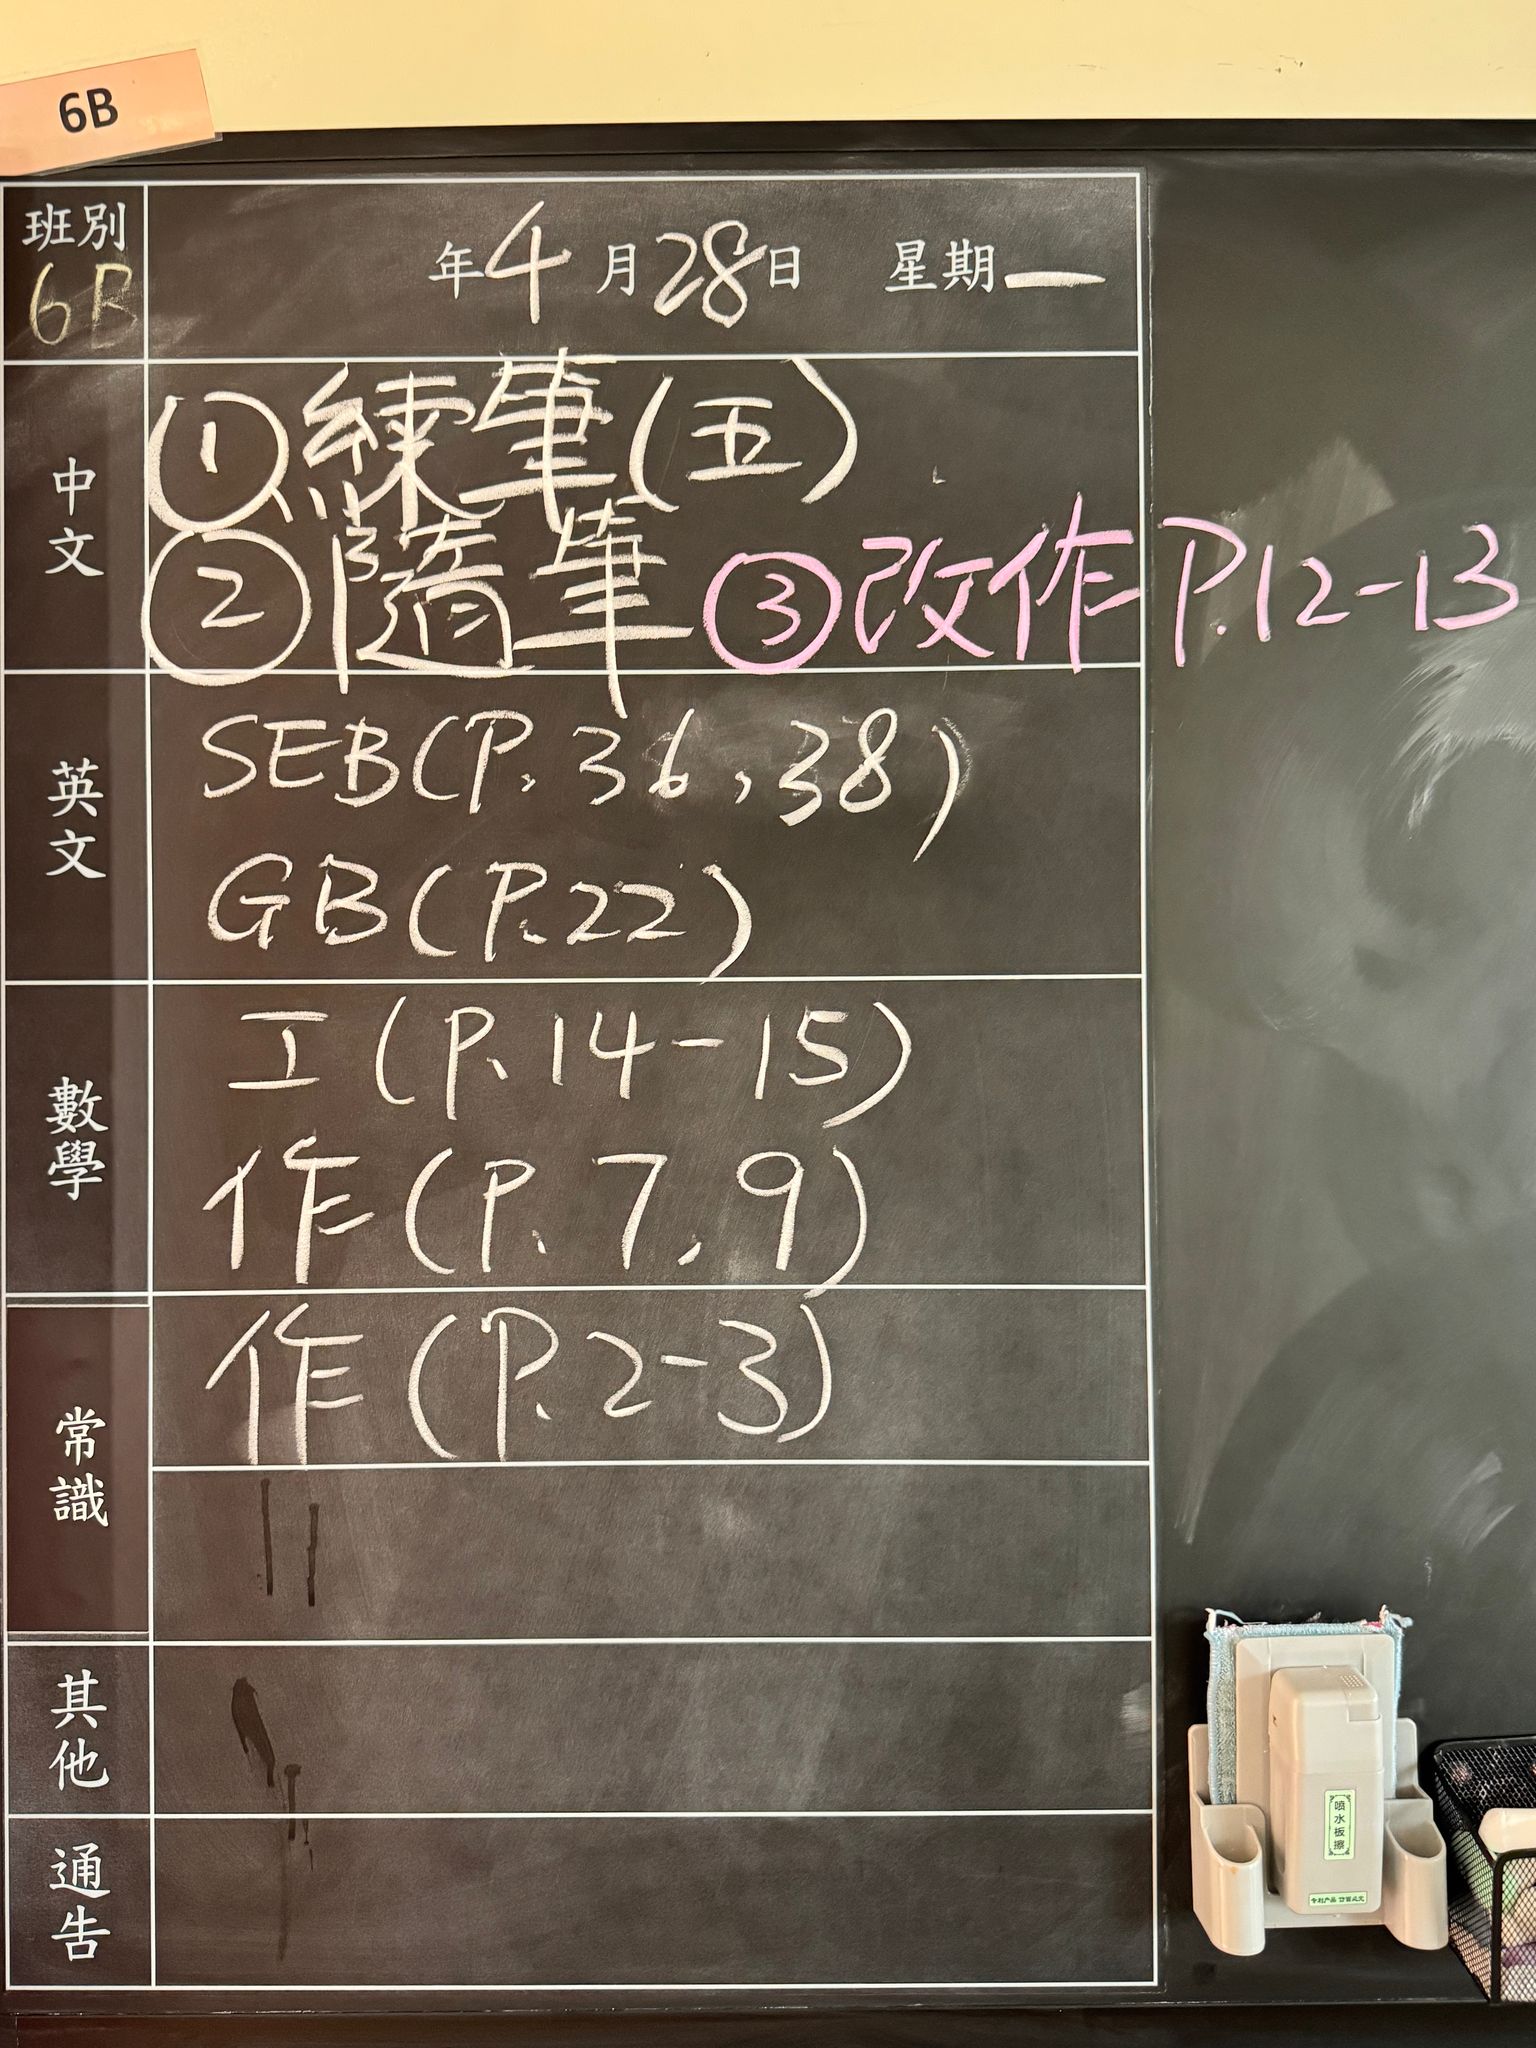 6B
班別
6B
年4月28日 星期一
中文
①練筆(五)
②隨筆 ③改作P.12-13
英文
SEB(P.36,38)
GB(P.22)
數學
工(P.14-15)
作(P.7,9)
常識
作(P.2-3)
其他
通告
喷水板擦
专利产品 仿冒必究